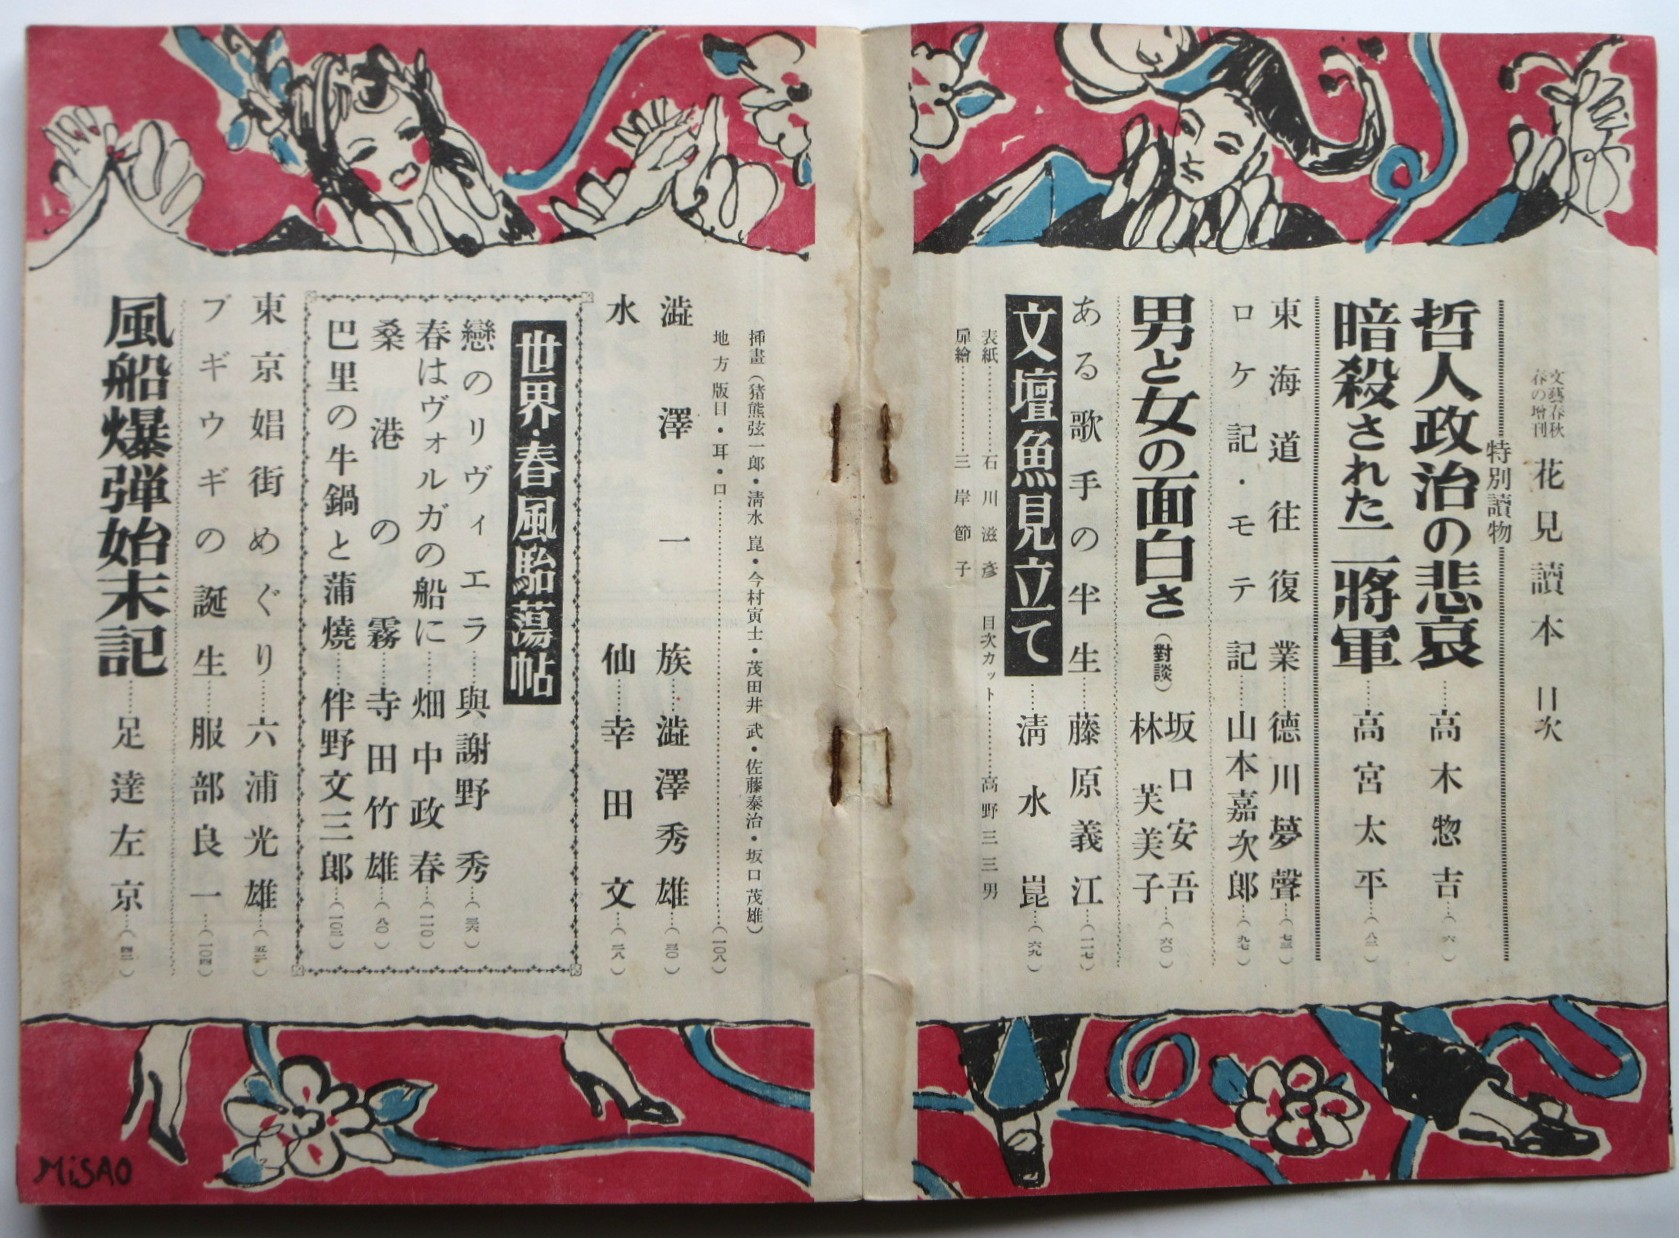 文藝春秋
春の増刊
花見讀本 目次
特別讀物
哲人政治の悲哀……高木惣吉…(六)
暗殺された二將軍……高宮太平…(八二)
東海道往復業……德川夢聲…(七三)
ロケ記・モテ記……山本嘉次郎…(九七)
男と女の面白さ(對談)
坂口安吾
林芙美子…(六〇)
ある歌手の半生……藤原義江…(一一七)
文壇魚見立て……淸水崑…(六九)
表紙……石川滋彦 目次カット……高野三三男
扉繪……三岸節子
挿畫(猪熊弦一郎・淸水崑・今村寅士・茂田井武・佐藤泰治・坂口茂雄)
地方版目・耳・口……(一〇八)
澁澤一族……澁澤秀雄…(三〇)
水仙……幸田文…(二八)
世界・春風駘蕩帖
戀のリヴィエラ……與謝野秀…(三六)
春はヴォルガの船に……畑中政春…(一一〇)
桑港の霧……寺田竹雄…(八〇)
巴里の牛鍋と蒲燒……伴野文三郎…(一〇二)
東京娼街めぐり……六浦光雄…(五二)
ブギウギの誕生……服部良一…(一〇四)
風船爆弾始末記……足達左京…(四二)
MiSAO